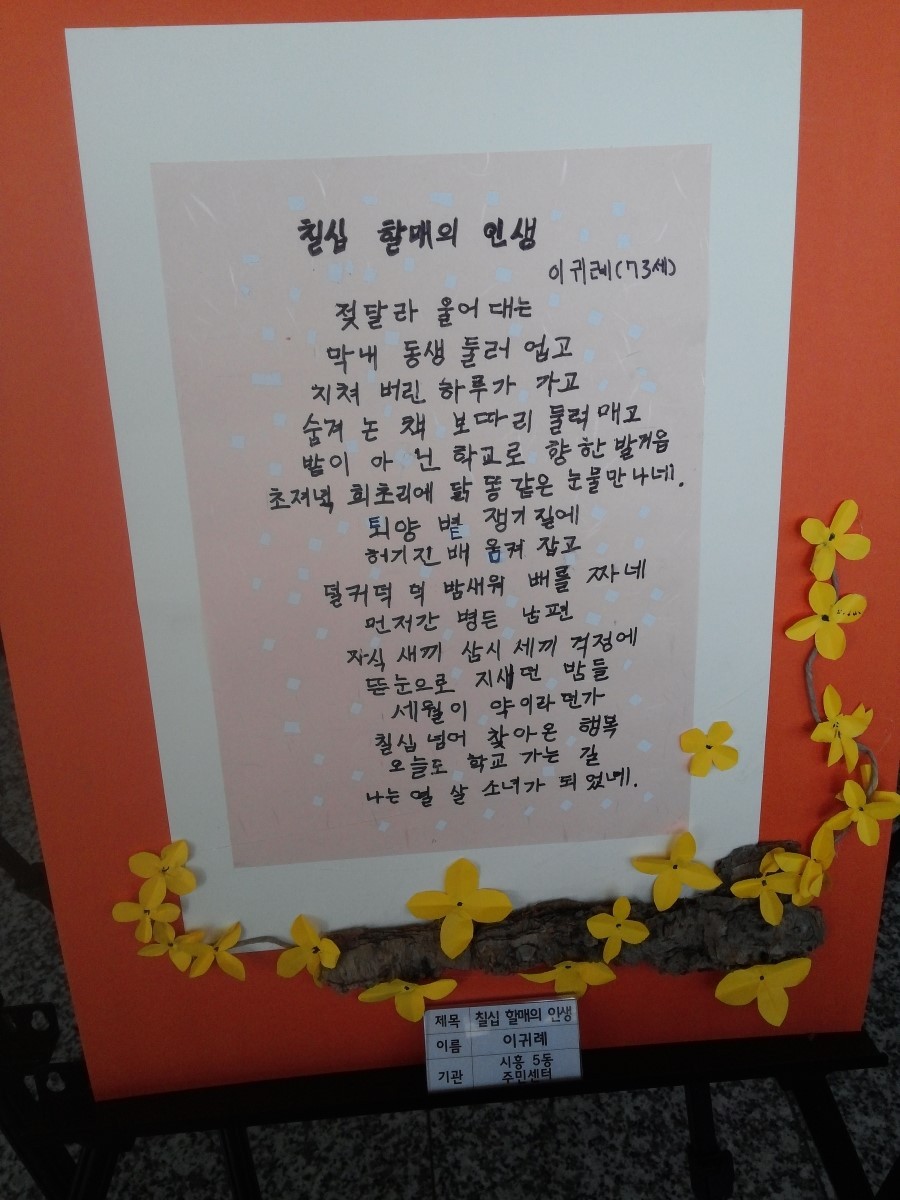 칠십 할매의 인생
이귀레(73세)
젖달라 울어대는
막내 동생 둘러 업고
지쳐 버린 하루가 가고
숨겨 논 책 보따리 둘러매고
밭이 아닌 학교로 향한 발거음
초저녁 회초리에 닭 똥 같은 눈물만 나네.
퇴양 볕 쟁기질에
허기진 배 움켜 잡고
덜커덕 덕 밤새워 배를 짜네
먼저간 병든 남편
자식 새끼 삼시 세끼 걱정에
뜬눈으로 지새던 밤들
세월이 약이라던가
칠십 넘어 찾아온 행복
오늘도 학교 가는 길
나는 열 살 소녀가 되었네.
제목 칠십 할매의 인생
이름 이귀례
기관 시흥 5동
주민센터